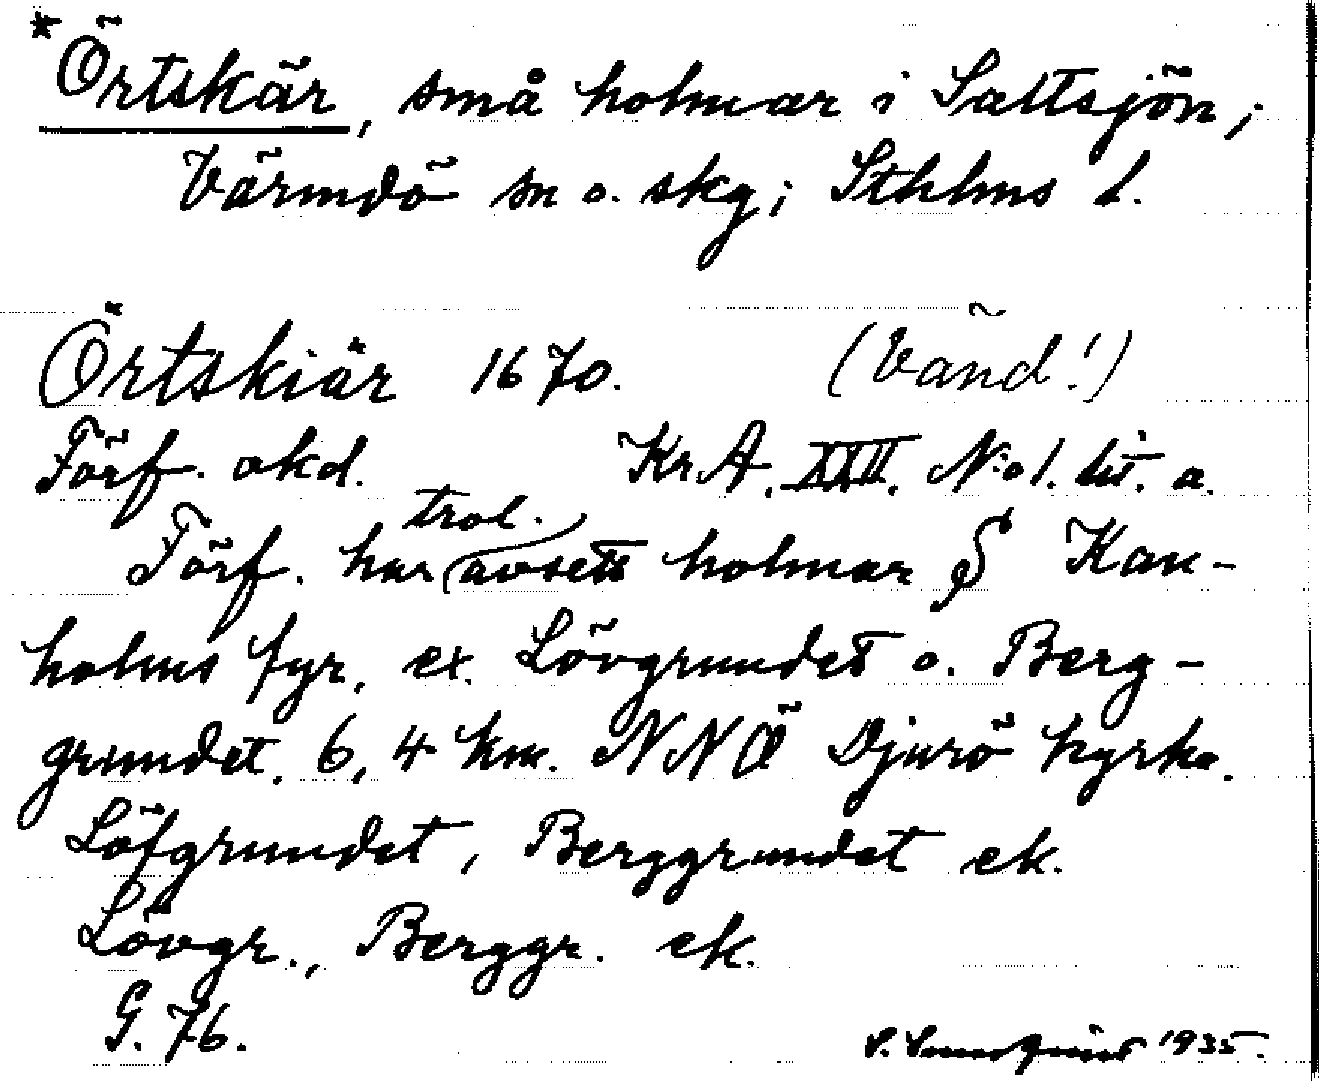 * Örtskär, små holmar i Saltsjön;
Värmdö sn o. skg; Sthlms l.
Örtskiär 1670. (Vänd!)
Förf. okd. KrA. XXII. N:o 1. lit. a.
trol.
Förf. har avsett holmar § Kan-
holms fyr, ex. Lövgrundet o. Berg-
grundet. 6,4 km. NNÖ Djurö kyrka.
Löfgrundet, Berggrundet ek.
Lövgr., Berggr. ek.
G. 76.
1935.